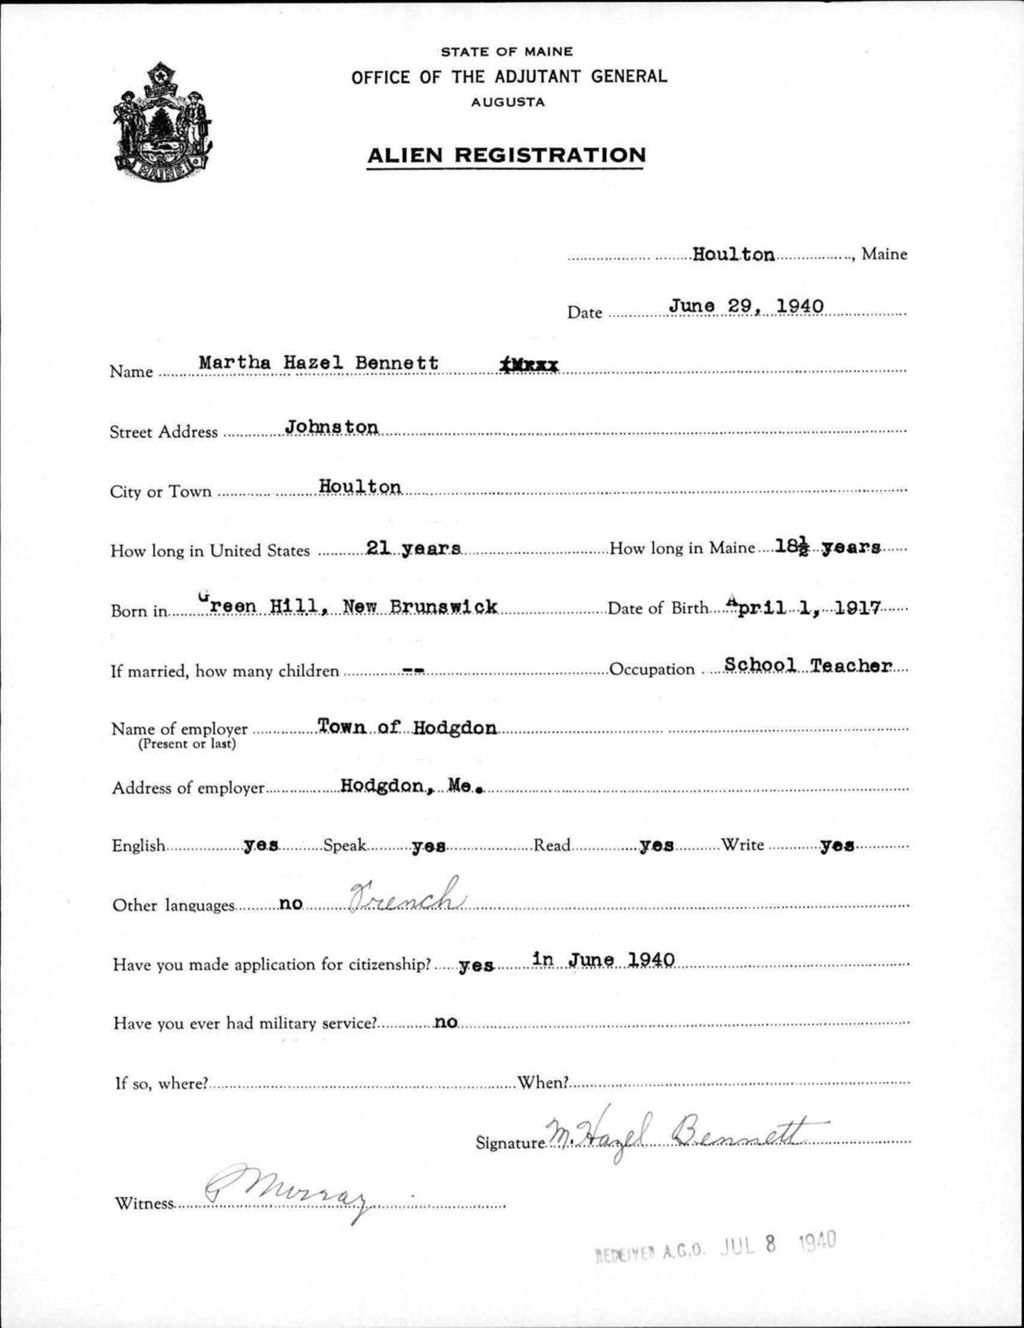 STATE OF MAINE
OFFICE OF THE ADJUTANT GENERAL
AUGUSTA
ALIEN REGISTRATION
MAINE
Houlton, Maine
Date June 29, 1940
Name Martha Hazel Bennett
Street Address Johnston
City or Town Houlton
How long in United States 21 years How long in Maine 18½ years
Born in Green Hill, New Brunswick Date of Birth April 1, 1917
If married, how many children -- Occupation School Teacher
Name of employer Town of Hodgdon
(Present or last)
Address of employer Hodgdon, Me.
English yes Speak yes Read yes Write yes
Other languages no French
Have you made application for citizenship? yes in June 1940
Have you ever had military service? no
If so, where? When?
Signature M. Hazel Bennett
Witness P Murray
RECEIVED A.G.O. JUL 8 1940